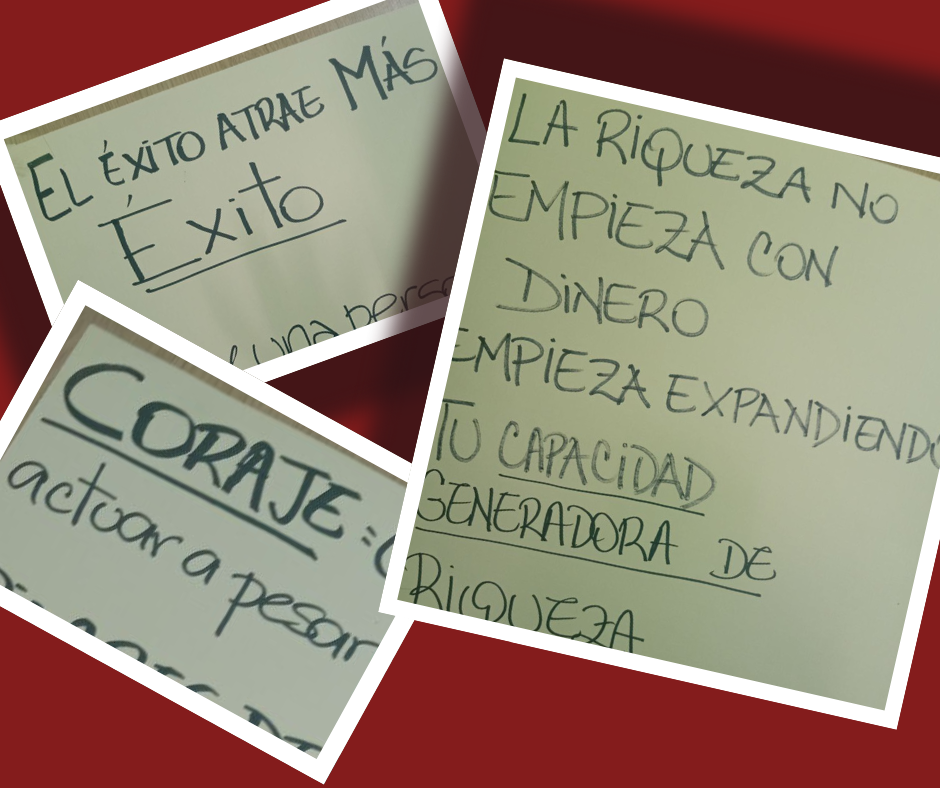 EL ÉXITO ATRAE MÁS
Éxito
una
CORAJE =
actuar a pesar
LA RIQUEZA NO
EMPIEZA CON
DINERO
EMPIEZA EXPANDIENDO
TU CAPACIDAD
GENERADORA DE
RIQUEZA